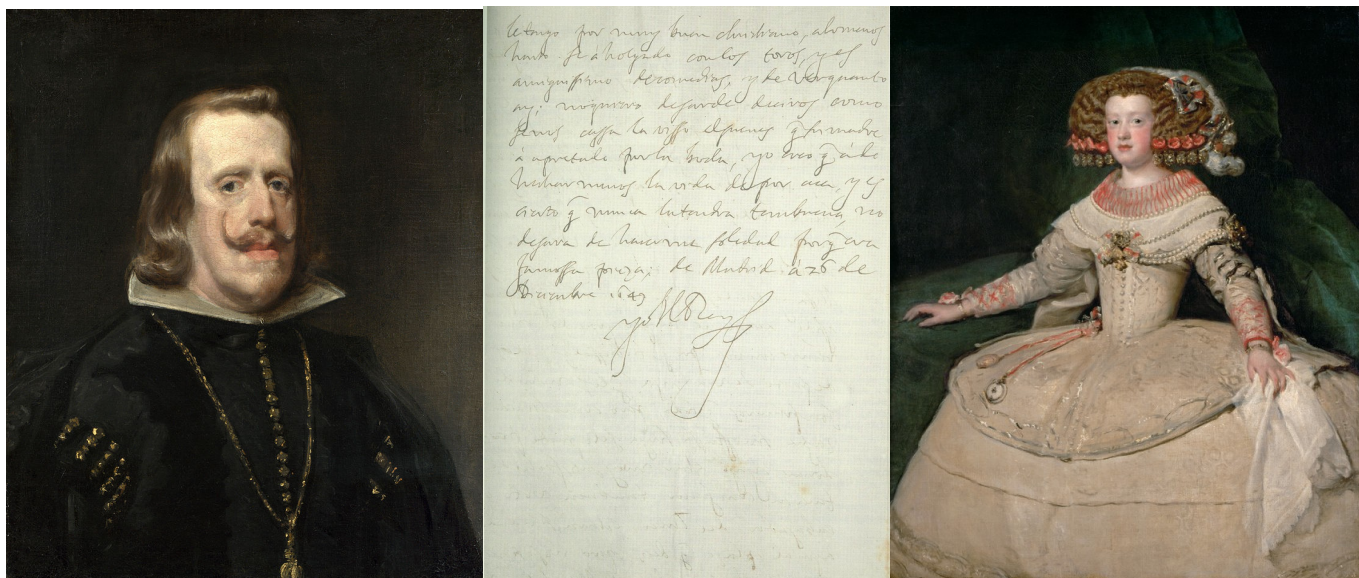 le tengo por muy buen christiano, alomenos
harto se à holgado con los toros, y es
amiguissimo de comedias, y de ver quanto
ay; no quiero dejar de deciros como
se nos cassa la
à apretado por la boda, yo creo q̃ à de
hechar menos la vida de por aca, y es
cierto q̃ nunca la tendra tan buena, no
dejara de hacerme soledad porq̃ era
famossa pieza; de Madrid à 28 de
Diciembre 1649
yo el Rey